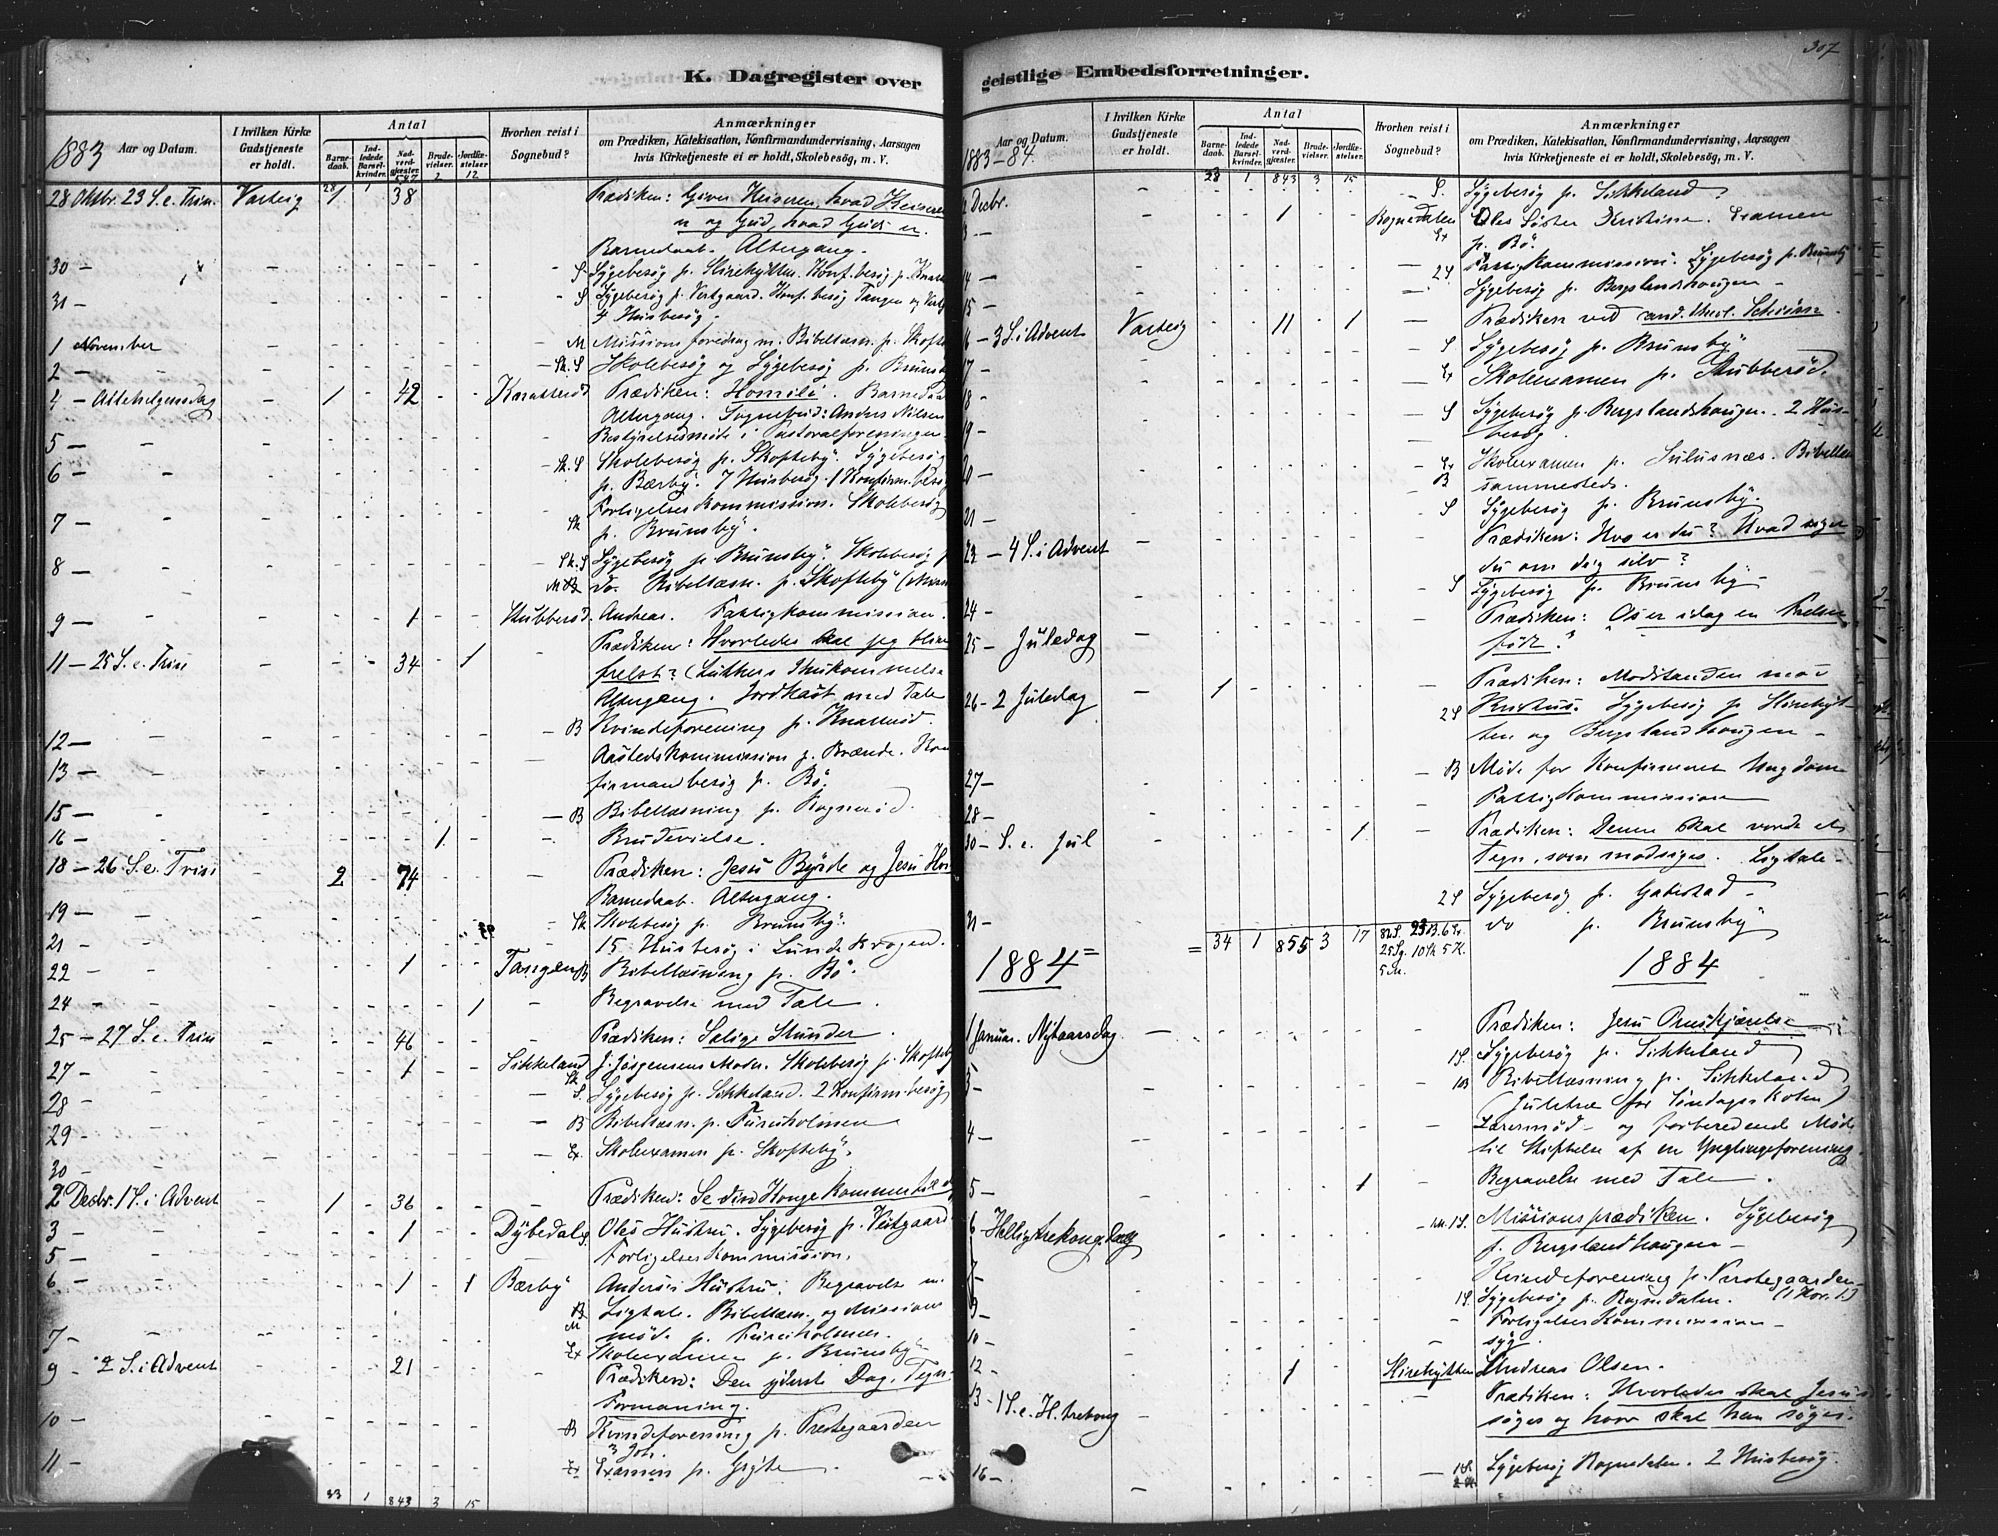 K. Dagregister over
1883
Aar og Datum.
I hvilken Kirke Gudstjeneste er holdt.
Antal
Barnedaab.
Indledede Barselkvinder.
Nadverdgjester.
Brudevielser.
Jordfæstelser.
Hvorhen reist i Sognebud?
Anmærkninger
om Prædiken, Katekisation, Konfirmandundervisning, Aarsagen
hvis Kirketjeneste ei er holdt, Skolebesög, m. V.
28 Oktbr. 23 S. e. Trin. Varteig 1 38 Prædiken: Giver Keiseren, hvad Keiserens
er og Gud, hvad Guds er.
Barnedaab. Altergang.
30 — S Sygebesög p.
31 — S Sygebesög p. Vestgaard. Konf. besög Tangen og
4 Husbesög.
1 November M Missionsforedrag m. Bibellæsn. p.
2 — Sk. S Skolebesög og Sygebesög p. Brunsby
4 — Allehelgensdag 1 42 Knatterød Prædiken: Homili. Barnedaab
Altergang. Sognebud: Anders Nilsen
5 — Bestyrelsesmøde i Pastoralforeningen
6 — Sk. S Skolebesög p. Skofteby. Sygebesög
p. Bærby. 7 Husbesög. 1 Konfirm.besög
7 — Forligelseskommission. Skolebesög
Sk p. Brunsby.
8 — Sk. S Sygebesög p. Brunsby. Skolebesög p.
do. Bibellæsn. p. Skofteby
9 — 1 Stubberød Andreas. Fattigkommission.
11 — 25 S. e. Trin 34 1 Prædiken: Hvorledes skal jeg blive
frelst? (Luthers Ihukommelse
Altergang. Jordkast med Tale
12 — B Kvindeforening p. Knatterød.
13 — Aastedskommission p. Brænde. Kon
firmandbesög p. Bö.
15 — B Bibellæsning p. Rognerød.
16 — 1 Brudevielse.
18 — 26 S. e. Trin 2 74 Prædiken: Jesu Byrde og Jesu
Barnedaab. Altergang.
19 — Sk Skolebesög p. Brunsby.
21 — 15 Husbesög i Lunde Krogen.
22 — 1 Tangen B Bibellæsning p. Bö.
24 — 1 Begravelse med Tale.
25 — 27 S. e. Trin 46 Prædiken: Salige Stunder.
27 — 1 Sikkeland J. Jörgensens Moder. Skolebesög p. Skofteby
28 — S. Sygebesög p. Sikkeland. 2 Konfirm.besög
29 — B Bibellæsn. p. Furuholmen
30 — Ex. Skolexamen p. Skofteby.
2 Decbr. 1 S. i Advent 1 36 Prædiken: Se din Konge kommer til dig
3 — 1 Dybedal Oles Hustru. Sygebesög p. Vestgaard
5 — Forligelseskommission.
6 — 1 1 Bærby Anderses Hustru. Begravelse m.
B Ligtale. Bibellæsn. og Missions
M möde p. Furuholmen.
7 — Ex Skolexamen p. Brunsby
9 — 2 S. i Advent 21 Prædiken: Den yderste Dag, Tegn.
Formaning.
10 — B Kvindeforening p. Prestegaarden
3 Joh.
11 — Ex Examen p. Gryte
33 1 843 3 15
geistlige Embedsforretninger.
307
1883-84
Aar og Datum.
I hvilken Kirke Gudstjeneste er holdt.
Antal
Barnedaab.
Indledede Barselkvinder.
Nadverdgjester.
Brudevielser.
Jordfæstelser.
Hvorhen reist i Sognebud?
Anmærkninger
om Prædiken, Katekisation, Konfirmandundervisning, Aarsagen
hvis Kirketjeneste ei er holdt, Skolebesög, m. V.
33 1 843 3 15
12 Decbr. S. Sygebesög p. Sikkeland
13 — 1 Rognedalen Oles Søster Kristine. Examen
Ex p. Bö.
14 — 2 S Fattigkommission. Sygebesög p. Brunsby
15 — Sygebesög p. Bergslandshaugen
16 — 3 S. i Advent Varteig 11 1 Prædiken ved cand. theol. Schiörn.
17 — S Sygebesög p. Brunsby
18 — Ex Skolexamen p. Stubberød.
19 — S Sygebesög p. Bergslandshaugen. 2 Hus-
besög.
20 — Ex Skolexamen p. Julusnæs. Bibellæsn
B sammesteds.
21 — S Sygebesög p. Brunsby.
23 — 4 S. i Advent Prædiken: Hvo er du? Hvad siger
du om dig selv?
24 — S Sygebesög p. Brunsby
25 — Juledag Prædiken: Os er idag en Frelser
født?
26 — 2 Juledag 1 Prædiken: Modstanden mod
2 S Kristus. Sygebesög p. Hirehyt-
ten og Bergslandhaugen
27 — B Møde for Konfirmeret Ungdom
28 — Fattigkommission
30 — S. e. Jul 1 Prædiken: Denne skal vorde et
Tegn, som modsiges. Ligtale
2 S Sygebesög p. Gabestad
31 — do p. Brunsby
= 34 1 855 3 17
25 Sg. 10 Sk 5 K.
5 M.
1884 1884
1 Januar. Nytaarsdag Prædiken: Jesu Omskjærelse
1 S. Sygebesög p. Sikkeland
3 — 1 B Bibellæsning p. Sikkeland
(Juletræ for Söndagsskolen)
4 — Lærermöd- og forberedende Møde
til Stiftelse af en Ynglingeforening.
5 — 1 Begravelse med Tale.
6 — Hellig trekongersdag 1 S. Missionsprædiken. Sygebesög
p. Bergslandhaugen
7 — Kvindeforening p. Prestegaarden
9 — 1 S. Sygebesög p. Rognedalen. (1 Kor. 1.)
10 — Forligelseskommission
syg.
12 — 1 Hirehytten Andreas Olsen.
13 — 1 S. e. H. trekong. Prædiken: Hvorledes skal Jesus
söges og hvor skal han söges.
16 — 1 S. Sygebesög Rognedalen. 2 Husbesög.